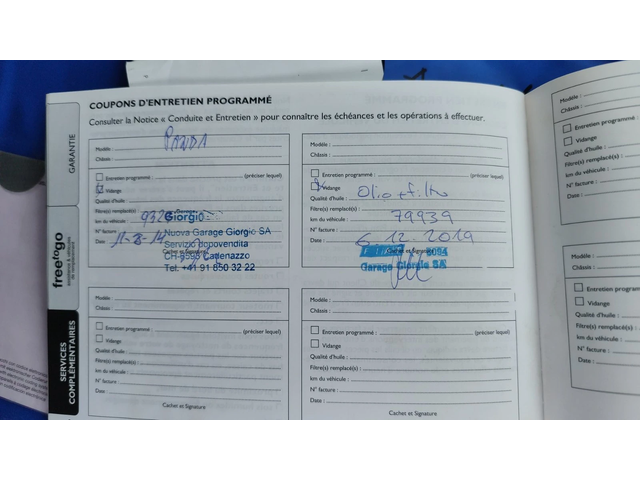 COUPONS D'ENTRETIEN PROGRAMMÉ
Consulter la Notice « Conduite et Entretien » pour connaître les échéances et les opérations à effectuer.
GARANTIE
freetogo
SERVICES
COMPLÉMENTAIRES
Modèle : PANDA
Châssis :
Entretien programmé : (préciser lequel)
Vidange
Qualité d'huile :
Filtre(s) remplacé(s) :
km du véhicule :
N° facture :
Date : 11-8-14
Cachet et Signature
Giorgio
Nuova Garage Giorgio SA
Servizio dopovendita
CH-6593 Cadenazzo
Tel. +41 91 850 32 22
Modèle :
Châssis :
Entretien programmé : (préciser lequel)
Vidange Olio + filtro
Qualité d'huile :
Filtre(s) remplacé(s) :
km du véhicule : 79939
N° facture :
Date : 6 12 2019
Cachet et Signature
Garage Giorgio SA
Modèle :
Châssis :
Entretien programmé : (préciser lequel)
Vidange
Qualité d'huile :
Filtre(s) remplacé(s) :
km du véhicule :
N° facture :
Date :
Cachet et Signature
Modèle :
Châssis :
Entretien programmé : (préciser lequel)
Vidange
Qualité d'huile :
Filtre(s) remplacé(s) :
km du véhicule :
N° facture :
Date :
Cachet et Signature
Modèle :
Châssis :
Entretien programmé
Vidange
Qualité d'huile :
Filtre(s) remplacé(s)
km du véhicule :
N° facture :
Date :
Modèle :
Châssis :
Entretien
Vidange
Qualité d'huile
Filtre(s) remplacé
km du véhicule
N° facture :
Date :